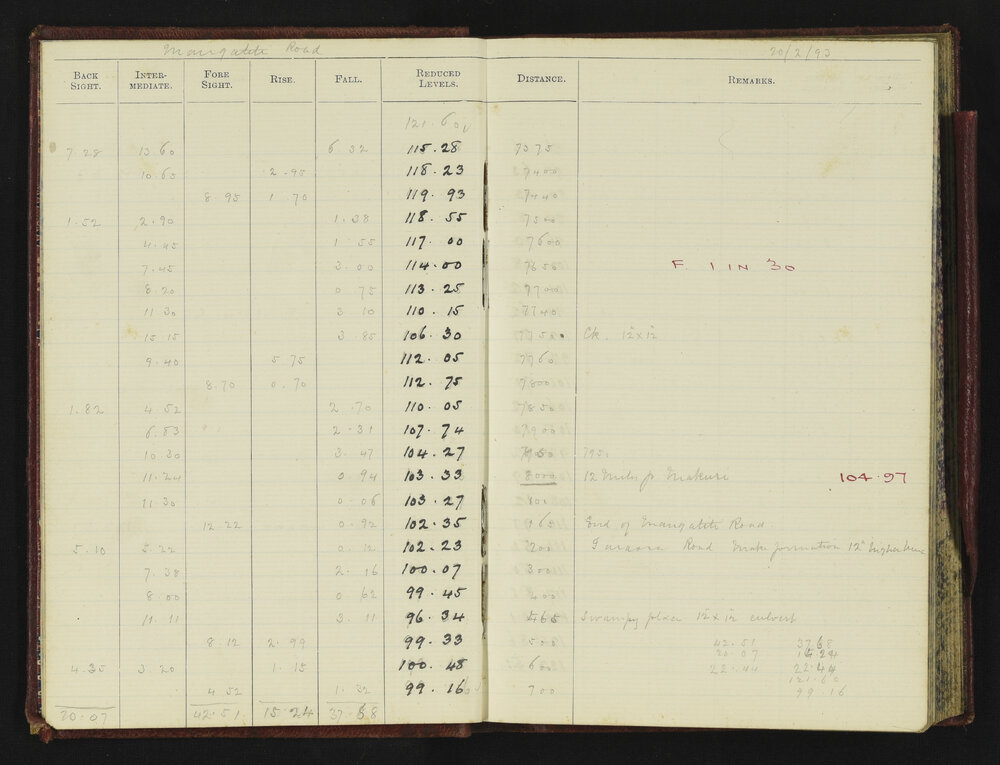 Mangatiti Road 20/2/93
BACK SIGHT. INTER-MEDIATE. FORE SIGHT. RISE. FALL. REDUCED LEVELS. DISTANCE. REMARKS.
121.60
7.28 13.60 6.32 115.28 7375
10.65 2.95 118.23 7400
8.95 1.70 119.93 7440
1.52 2.90 1.38 118.55 7500
4.45 1.55 117.00 7600
7.45 3.00 114.00 7650 F. 1 IN 30
8.20 0.75 113.25 7700
11.30 3.10 110.15 7740
15.15 3.85 106.30 7750 Ck. 12x12
9.40 5.75 112.05 7760
8.70 0.70 112.75 7800
1.82 4.52 2.70 110.05 7850
6.83 2.31 107.74 7900
10.30 3.47 104.27 7950 795
11.24 0.94 103.33 8000 12 Miles fr Makuri 104.97
11.30 0.06 103.27 100
12.22 0.92 102.35 165 End of Mangatiti Road.
5.10 5.22 0.12 102.23 200 Road Make formation 12" higher
7.38 2.16 100.07 300
8.00 0.62 99.45 400
11.11 3.11 96.34 465 Swampy place 12x12 culvert
8.12 2.99 99.33 500 42.51 37.68
20.07 15.24
4.35 3.20 1.15 100.48 600 22.44 22.44
121.60
4.52 1.32 99.16 700 99.16
20.07 42.51 15.24 37.68